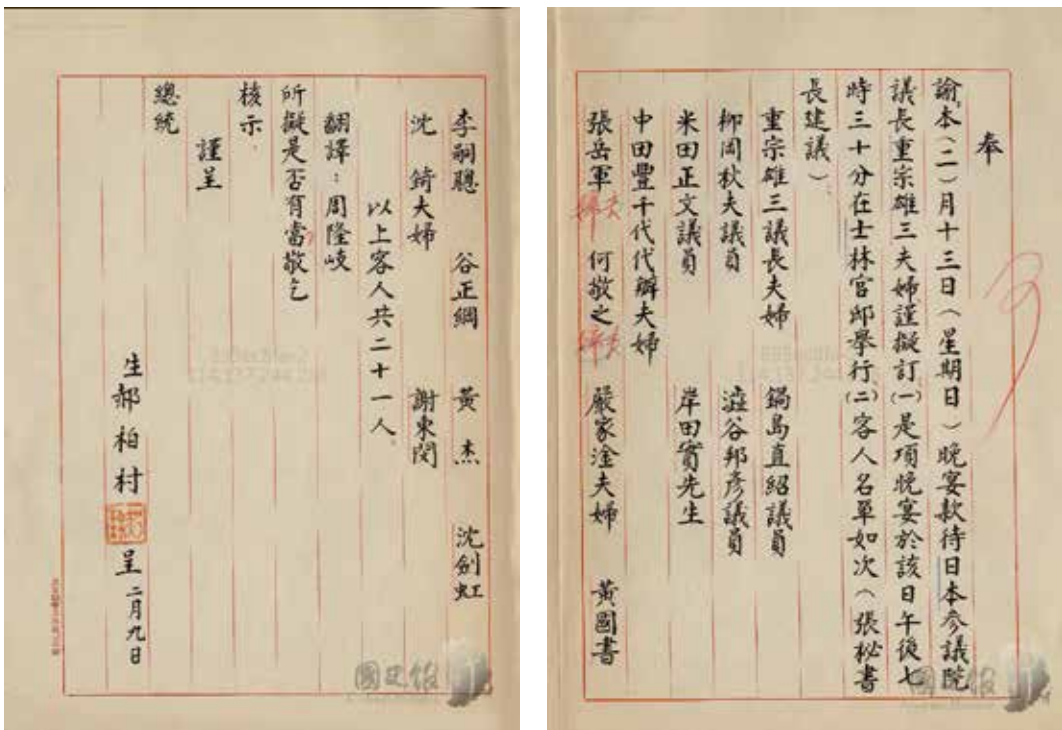 奉
諭本(二)月十三日(星期日)晚宴款待日本參議院
議長重宗雄三夫婦謹擬訂(一)是項晚宴於該日午後七
時三十分在士林官邸舉行(二)客人名單如次(張秘書
長建議)
重宗雄三議長夫婦 鍋島直紹議員
柳岡秋夫議員 澁谷邦彥議員
米田正文議員 岸田實先生
中田豐千代代辦夫婦
張岳軍夫婦 何敬之夫婦 嚴家淦夫婦 黃國書
李嗣聰 谷正綱 黃 杰 沈劍虹
沈 錡夫婦 謝東閔
以上客人共二十一人。
翻譯:周隆岐
所擬是否有當敬乞
核示。
謹呈
總統
生郝柏村 呈 二月九日
國史館
國史館